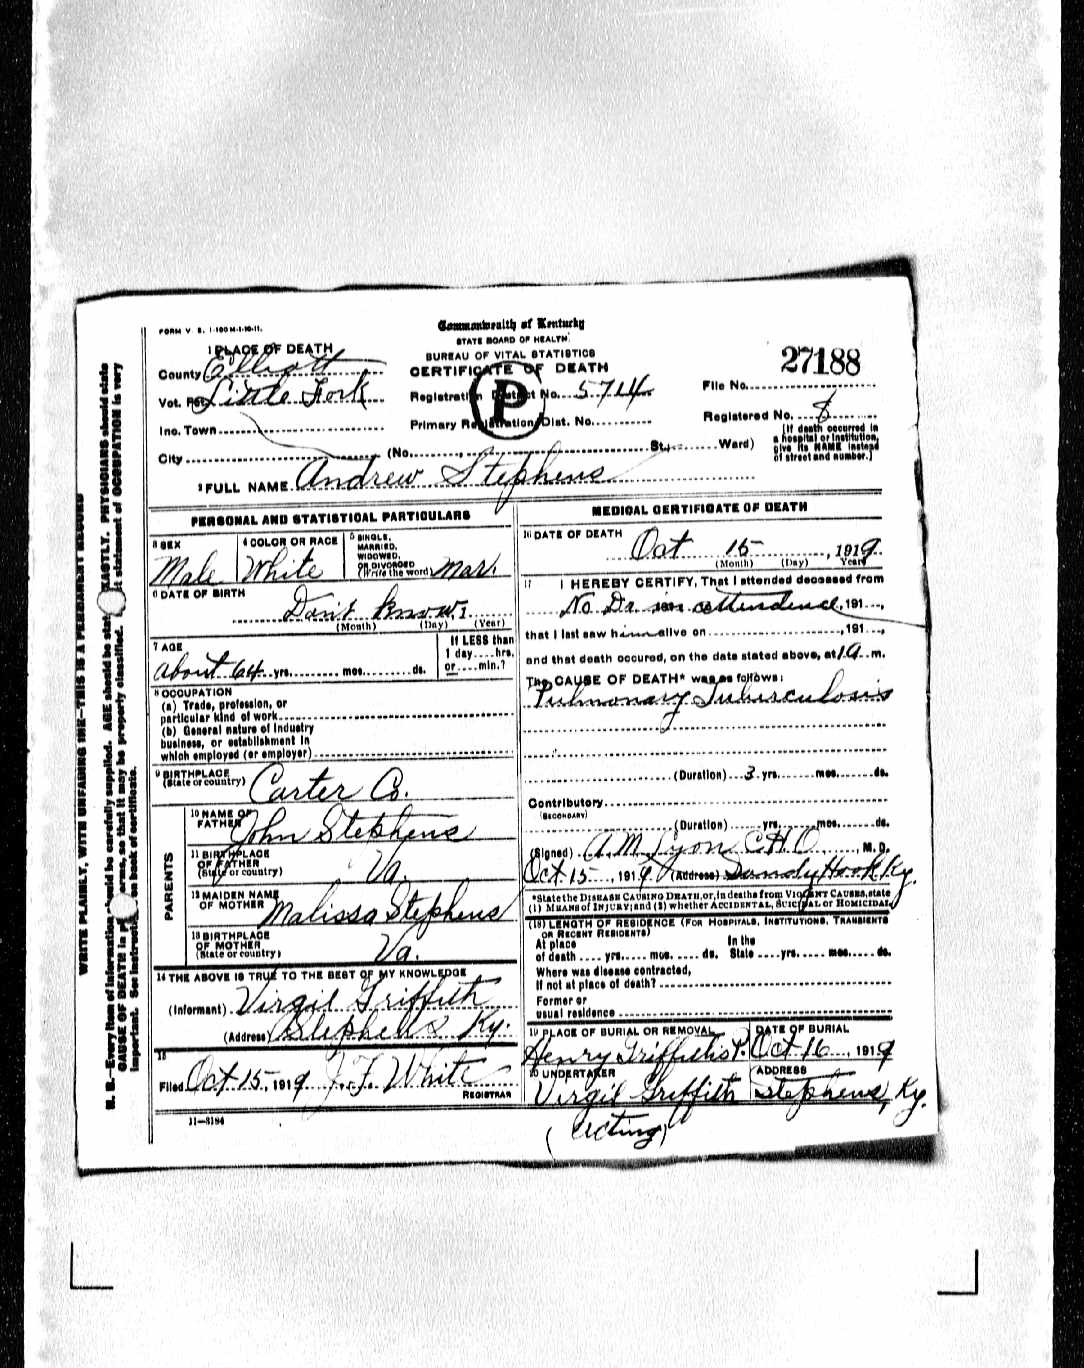 FORM V. S. 1-100 M-1-10-11.
Commonwealth of Kentucky
STATE BOARD OF HEALTH
BUREAU OF VITAL STATISTICS
CERTIFICATE OF DEATH
1 PLACE OF DEATH
County Elliott
Vot. Pct. Little Fork
Inc. Town
City (No. , St., Ward)
Registration District No. 5714
Primary Registration Dist. No.
P
27188
File No.
Registered No. 8
[If death occurred in
a hospital or institution,
give its NAME instead
of street and number.]
2 FULL NAME Andrew Stephens
PERSONAL AND STATISTICAL PARTICULARS
3 SEX
Male
4 COLOR OR RACE
White
5 SINGLE,
MARRIED,
WIDOWED,
OR DIVORCED
(Write the word) Mar.
6 DATE OF BIRTH
Dont know, 1
(Month) (Day) (Year)
7 AGE
about 64 yrs. mos. ds.
If LESS than
1 day hrs.
or min.?
8 OCCUPATION
(a) Trade, profession, or
particular kind of work
(b) General nature of Industry
business, or establishment in
which employed (or employer)
9 BIRTHPLACE
(State or country) Carter Co.
PARENTS
10 NAME OF
FATHER John Stephens
11 BIRTHPLACE
OF FATHER
(State or country) Va.
12 MAIDEN NAME
OF MOTHER Malissa Stephens
13 BIRTHPLACE
OF MOTHER
(State or country) Va.
14 THE ABOVE IS TRUE TO THE BEST OF MY KNOWLEDGE
(Informant) Virgil Griffith
(Address) Stephens Ky.
15
Filed Oct 15, 1919 J. F. White
REGISTRAR
11—3184
MEDICAL CERTIFICATE OF DEATH
16 DATE OF DEATH
Oct 15, 1919
(Month) (Day) Year
17 I HEREBY CERTIFY, That I attended deceased from
No Dr in attendence, 191 ,
that I last saw him alive on , 191 ,
and that death occured, on the date stated above, at 1 a m.
The CAUSE OF DEATH* was as follows:
Pulmonary Tuberculosis
(Duration) 3 yrs. mos. ds.
Contributory
(SECONDARY)
(Duration) yrs. mos. ds.
(Signed) A. M. Lyon C H O , M. D.
Oct 15, 1919 (Address) Sandy Hook Ky.
*State the DISEASE CAUSING DEATH, or, in deaths from VIOLENT CAUSES, state
(1) MEANS OF INJURY; and (2) whether ACCIDENTAL, SUICIDAL or HOMICIDAL.
(18) LENGTH OF RESIDENCE (FOR HOSPITALS, INSTITUTIONS, TRANSIENTS
OR RECENT RESIDENTS)
At place
of death yrs. mos. ds. In the State yrs. mos. ds.
Where was disease contracted,
if not at place of death?
Former or
usual residence
19 PLACE OF BURIAL OR REMOVAL
Henry Griffiths P.
DATE OF BURIAL
Oct 16, 1919
20 UNDERTAKER
Virgil Griffith
ADDRESS
Stephens, Ky.
(acting)
WRITE PLAINLY, WITH UNFADING INK—THIS IS A PERMANENT RECORD
N. B.—Every item of information should be carefully supplied. AGE should be stated EXACTLY. PHYSICIANS should state
CAUSE OF DEATH in terms, so that it may be properly classified. statement of OCCUPATION is very
important. See instructions on back of certificate.